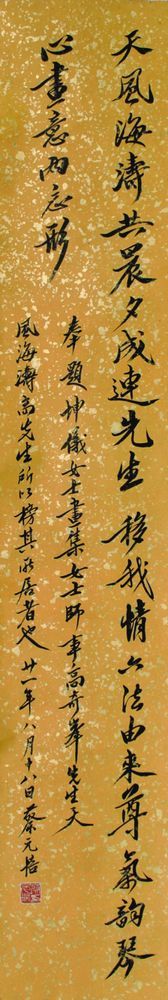 天風海濤共晨夕成連先生移我情六法由來尊氣韵琴
心畫意兩忘形
奉題坤儀女士畫集女士師事高奇峯先生天
風海濤高先生所以榜其所居者也廿一年八月十八日蔡元培